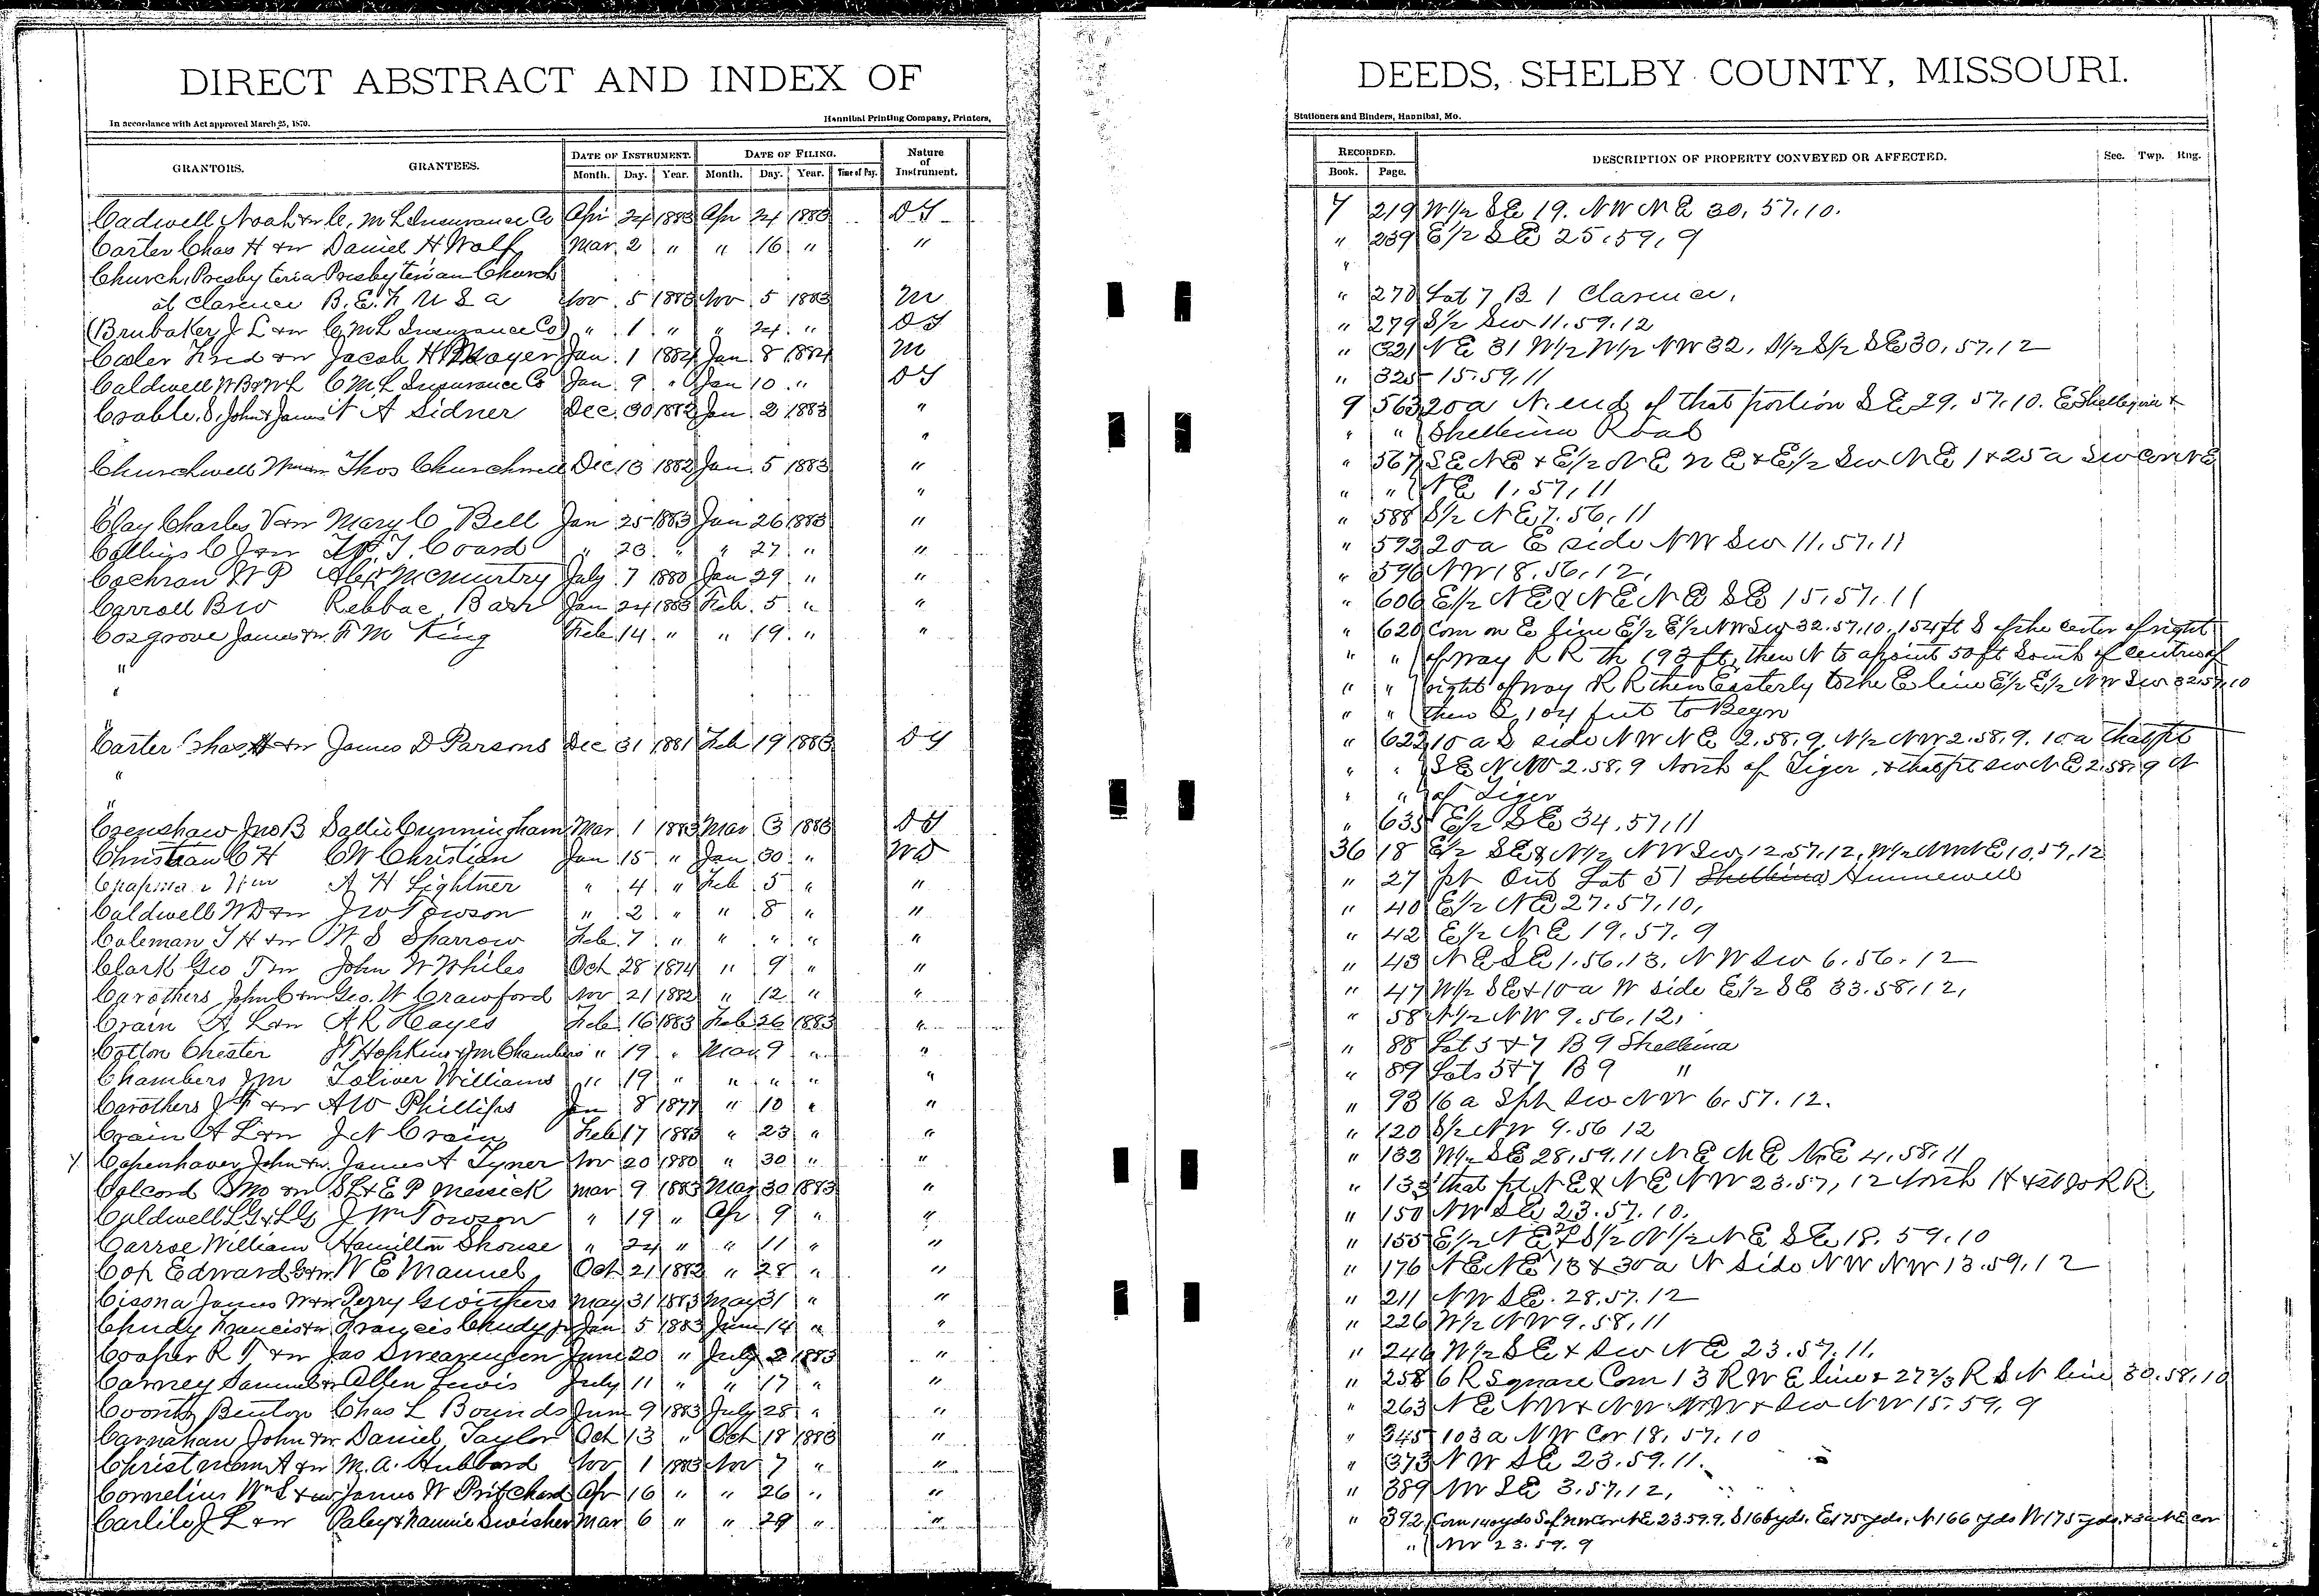 DIRECT ABSTRACT AND INDEX OF
DEEDS, SHELBY COUNTY, MISSOURI.
In accordance with Act approved March 25, 1870.
Hannibal Printing Company, Printers,
Stationers and Binders, Hannibal, Mo.
GRANTORS. GRANTEES. DATE OF INSTRUMENT. DATE OF FILING. Nature of Instrument. RECORDED. DESCRIPTION OF PROPERTY CONVEYED OR AFFECTED. Sec. Twp. Rng.
Month. Day. Year. Month. Day. Year. Time of Day. Book. Page.
Cadwell Noah & w C. M L Insurance Co Apr 24 1883 Apr 24 1883 DT 7 219 W 1/2 SE 19. NW NE 30. 57. 10.
Carter Chas H & w Daniel H Wolf Mar 2 " " 16 " " " 239 E 1/2 SE 25. 59. 9
Church, Presbyteria Presbyterian Church "
at Clarence B. E. F. U S a Nov 5 1883 Nov 5 1883 M " 270 Lot 7 B 1 Clarence.
(Brubaker J L & w C M L Insurance Co) " 1 " " 24 " DT " 279 S 1/2 SW 11. 59. 12
Fred & w Jacob H Moyer Jan. 1 1884 Jan. 8 1884 M " 321 NE 31 W 1/2 W 1/2 NW 32. S 1/2 S 1/2 SE 30. 57. 12
Caldwell W B & W L C M L Insurance Co Jan. 9 " Jan 10 " DT " 325 15. 59. 11
Crable. S, John & James N A Sidner Dec. 30 1882 Jan. 2 1883 " 9 563 20 a N. end of that portion SE 29. 57. 10. E Shelbyville &
" " " Shelbina Road
Churchwell Thos Churchwell Dec 13 1882 Jan. 5 1883 " " 567 SE NE & E 1/2 NE NE & E 1/2 SW NE 1 & 25 a SW cor NE
" " " NE 1. 57. 11
Clay Charles V & w Mary C Bell Jan 25 1883 Jan 26 1883 " " 588 S 1/2 NE 7. 56. 11
Collins C J & w T. Coard " 23 " " 27 " " " 593 20 a E side NW SW 11. 57. 11
Cochran W P Alex McMurtry July 7 1880 Jan 29 " " " 596 NW 18. 56. 12.
Carroll B W Rebbac Barr Jan 24 1883 Feb. 5 " " " 606 E 1/2 NE & NE NE SE 15. 57. 11
Cosgrove James & w F M King Feb 14 " " 19 " " " 620 Com on E line E 1/2 E 1/2 NW SW 32. 57. 10. 154 ft S of the center of right
" " " of way R R th 193 ft, then N to a point 50 ft South of centre of
" " " right of way R R then Easterly to the E line E 1/2 E 1/2 NW SW 32 57. 10
" " then S. 104 feet to Begn
Carter Chas H & w James D Parsons Dec 31 1881 Feb 19 1883 DT " 622 10 a S side NW NE 2. 58. 9. N 1/2 NW 2. 58. 9. 10 a that pt
" " " SE NW 2. 58. 9 North of Tiger, & that pt SW NE 2. 58. 9 N
" " of Tiger
Crenshaw Jno B Sallie Cunningham Mar 1 1883 Mar 3 1883 DT " 635 E 1/2 SE 34. 57. 11
Christian C H C W Christian Jan 15 " Jan 30 " WD 36 18 E 1/2 SE & N 1/2 NW SW 12. 57. 12. W 1/2 NW NE 10. 57. 12
A H Lightner " 4 " Feb 5 " " " 27 pt Out Lot 51 Shelbina Hunnewell
Caldwell W D & w J W Towson " 2 " " 8 " " " 40 E 1/2 NE 27. 57. 10.
Coleman T H & w W. S Sparrow Feb. 7 " " " " " " 42 E 1/2 NE 19. 57. 9
Clark Geo T John W Whiles Oct 28 1874 " 9 " " " 43 NE SE 1. 56. 13. NW SW 6. 56. 12
Carothers John C & w Geo. W Crawford Nov 21 1882 " 12 " " " 47 W 1/2 SE & 10 a W side E 1/2 SE 33. 58. 12.
Crain A L & w A R Hayes Feb 16 1883 Feb 26 1883 " " 58 N 1/2 NW 9. 56. 12.
Cotton Chester Hopkins & J M Chambers " 19 " Mar 9 " " " 88 Lot 5 & 7 B 9 Shelbina
Chambers J M Toliver Williams " 19 " " " " " " 89 Lots 5 & 7 B 9 "
Carothers J F & w A W Phillips Jan 8 1877 " 10 " " " 93 16 a SW NW 6. 57. 12.
Crain A L & w J N Crain Feb 17 1883 " 23 " " " 120 S 1/2 NW 9. 56 12
Y Copenhaver John & w James A Tyner Nov 20 1880 " 30 " " " 132 W 1/2 SE 28. 59. 11 NE NE NE 4. 58. 11
Colcord & w S L & E P Messick Mar 9 1883 Mar 30 1883 " " 133 that pt NE & NE NW 23. 57. 12 North H & St Jo R R
Caldwell L G & L G J Wm Towson " 19 " Apr 9 " " " 150 NW SE 23. 57. 10.
William Hamilton Shouse " 24 " " 11 " " " 155 E 1/2 NE & S 1/2 N 1/2 NE SE 18. 59. 10
Cox Edward & w W E Manuel Oct 21 1882 " 28 " " " 176 NE NE 13 & 30 a N Side NW NW 13. 59. 12
Cissna James W & w Perry May 31 1883 May 31 " " " 211 NW SE. 28. 57. 12
Chudy Francis & w Francis Chudy Jr Jan 5 1883 June 14 " " " 226 W 1/2 NW 9. 58. 11
Cooper R T & w Jas Swearengen June 20 " July 2 1883 " " 246 W 1/2 SE & SW NE 23. 57. 11.
Carney Samuel & w Allen Lewis July 11 " " 17 " " " 258 6 R Square Com 13 R W E line & 27 2/3 R S N line 30. 58. 10
Coontz Benton Chas L Bounds June 9 1883 July 28 " " " 263 NE NW & NW NW & SW NW 15. 59. 9
Carnahan John & w Daniel Taylor Oct 13 " Oct 18 1883 " " 345 103 a NW Cor 18. 57. 10
Christman A & w M. A. Hubbard Nov 1 1883 Nov 7 " " " 373 NW SE 23. 59. 11.
Cornelius Wm L & w James W Pritchard Apr 16 " " 26 " " " 389 NW SE 3. 57. 12.
Carlile J L & w Paley & Nannie Swisher Mar 6 " " 29 " " " 392 Com 140 yds S of NW Cor NE 23. 59. 9. S 166 yds. E 175 yds. N 166 yds W 175 yds. & 3 a NE cor
" NW 23. 59. 9